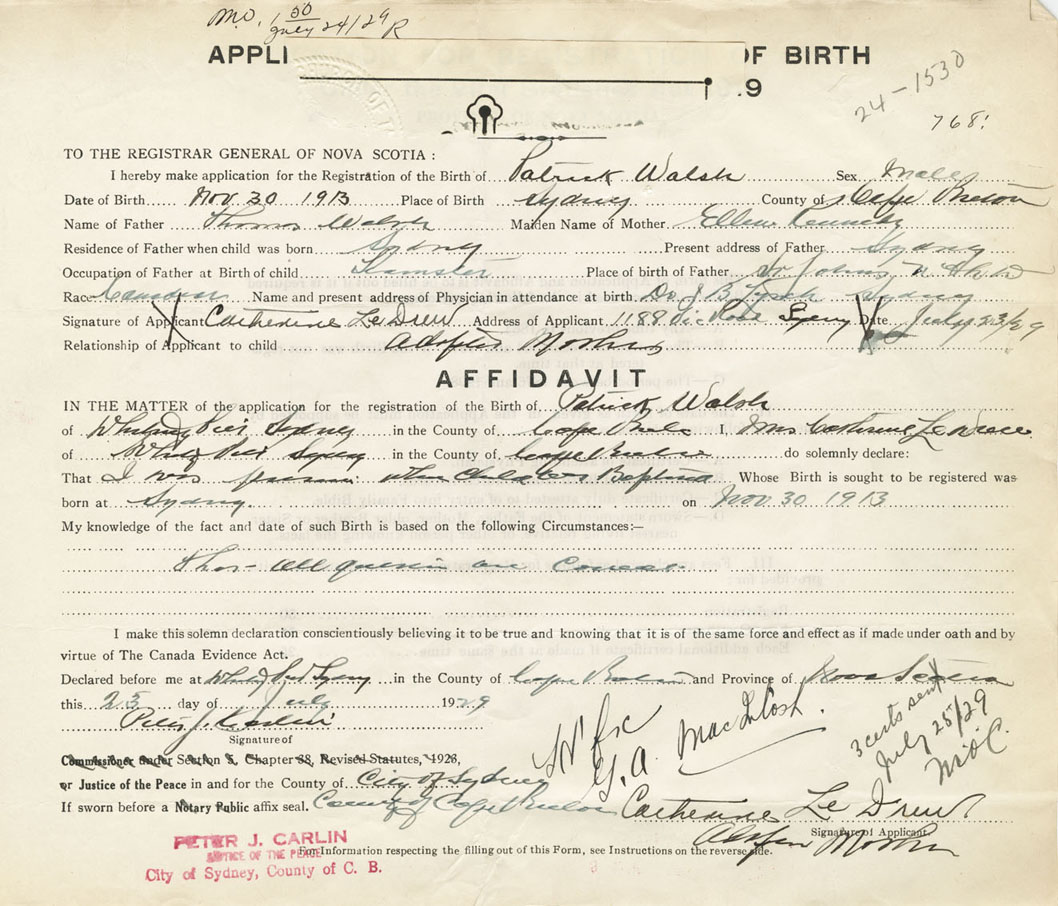 M.O. 1 50
July 24/29 R
APPLI OF BIRTH
.9
24-1530
768
TO THE REGISTRAR GENERAL OF NOVA SCOTIA :
I hereby make application for the Registration of the Birth of Patrick Walsh Sex Male
Date of Birth Nov. 30 1913 Place of Birth Sydney County of Cape Breton
Name of Father Thomas Walsh Maiden Name of Mother Ellen Kennedy
Residence of Father when child was born Sydney Present address of Father Sydney
Occupation of Father at Birth of child Teamster Place of birth of Father St Johns
Race Canadian Name and present address of Physician in attendance at birth Dr. J B Sydney
Signature of Applicant Catherine Le Drew Address of Applicant 1188 Vic Road Sydney Date July 23/29
Relationship of Applicant to child Adopted Mother
AFFIDAVIT
IN THE MATTER of the application for the registration of the Birth of Patrick Walsh
of Whitney Pier Sydney in the County of Cape Breton I, Mrs Catherine Le Drew
of Whitney Pier Sydney in the County of Cape Breton do solemnly declare:
That I was present when Child was Baptised Whose Birth is sought to be registered was
born at Sydney on Nov 30 1913
My knowledge of the fact and date of such Birth is based on the following Circumstances:—
All are
I make this solemn declaration conscientiously believing it to be true and knowing that it is of the same force and effect as if made under oath and by
virtue of The Canada Evidence Act.
Declared before me at Whitney Pier Sydney in the County of Cape Breton and Province of Nova Scotia
this 23 day of July 1929
Peter J. Carlin
Signature of
Commissioner under Section 5, Chapter 38, Revised Statutes, 1923,
or Justice of the Peace in and for the County of City of Sydney
If sworn before a Notary Public affix seal. County of Cape Breton
G. A. MacIntosh.
3 cents sent
July 25/29
Catherine Le Drew
Signature of Applicant
Mother
PETER J. CARLIN
JUSTICE OF THE PEACE
City of Sydney, County of C. B.
For Information respecting the filling out of this Form, see Instructions on the reverse side.